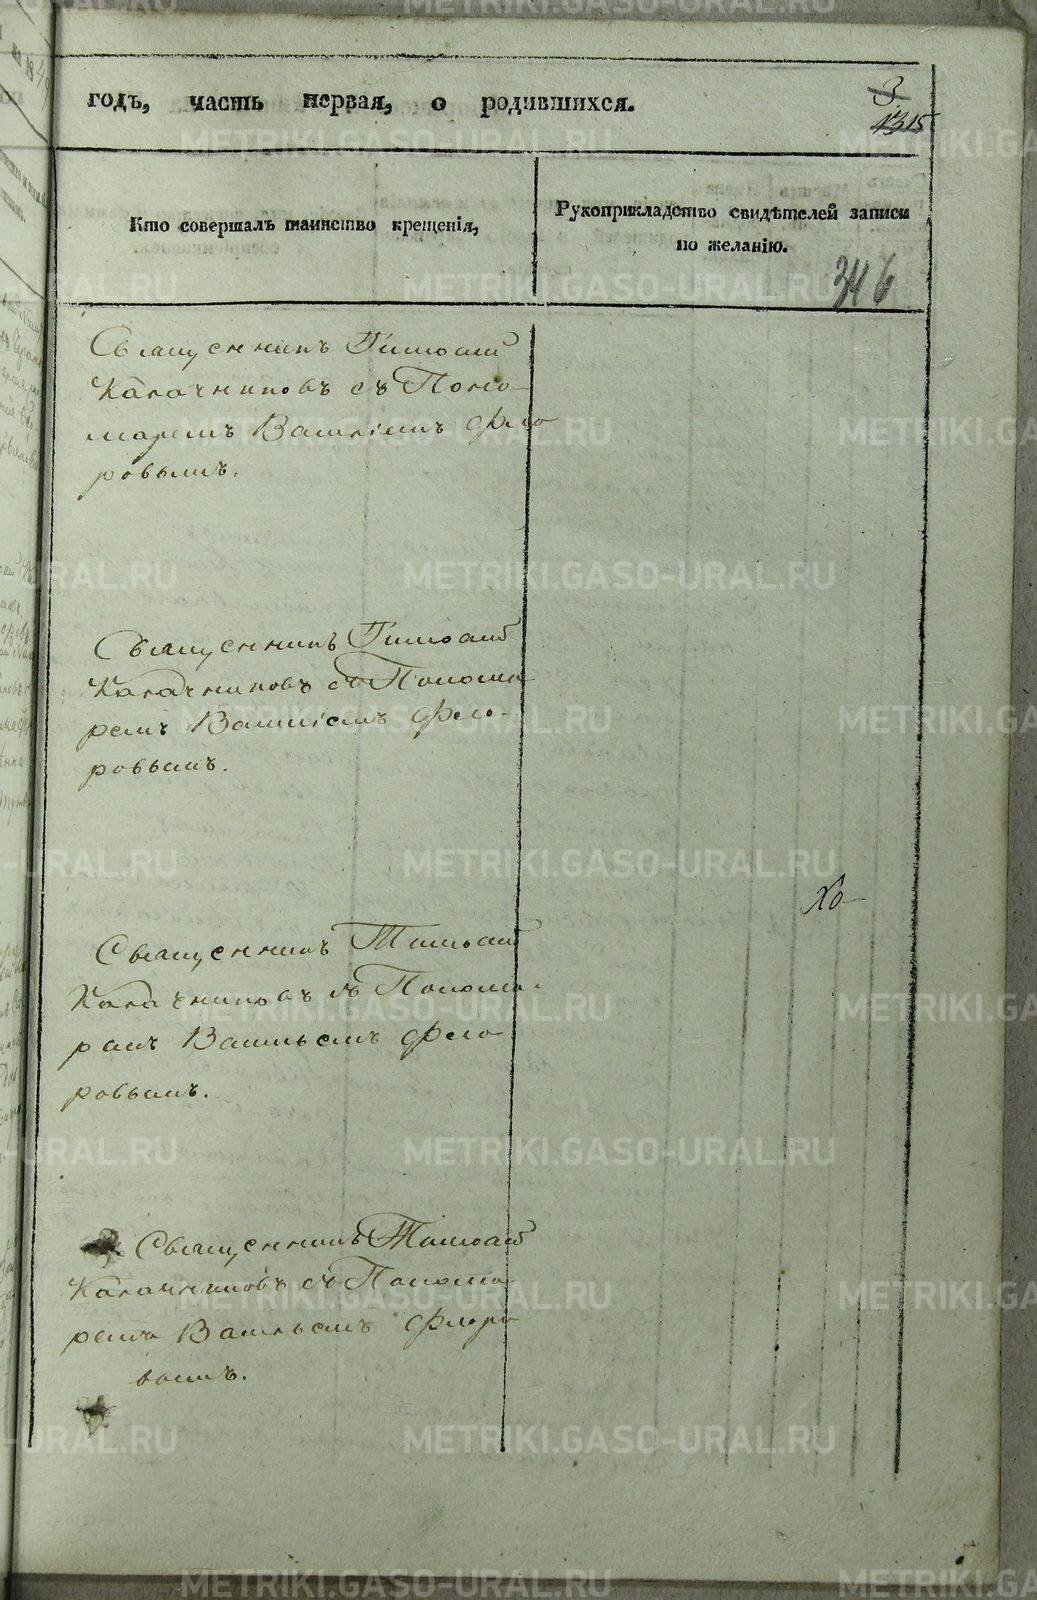 годъ, часть первая, о родившихся.
3
1315
Кто совершалъ таинство крещенія,
Рукоприкладство свидѣтелей записи
по желанію.
346
Священникъ Тимоѳей
Калачниковъ съ Поно-
маремъ Василіемъ Фло
ровымъ.
Священникъ Тимоѳей
Калачниковъ съ Понома
ремъ Василіемъ Фло-
ровымъ.
Священникъ Тимоѳей
Калачниковъ съ Понома-
ремъ Васильемъ Фло
ровымъ.
Священникъ Тимоѳей
Калачниковъ съ Понома
ремъ Васильемъ Флоро
вымъ.
METRIKI.GASO-URAL.RU